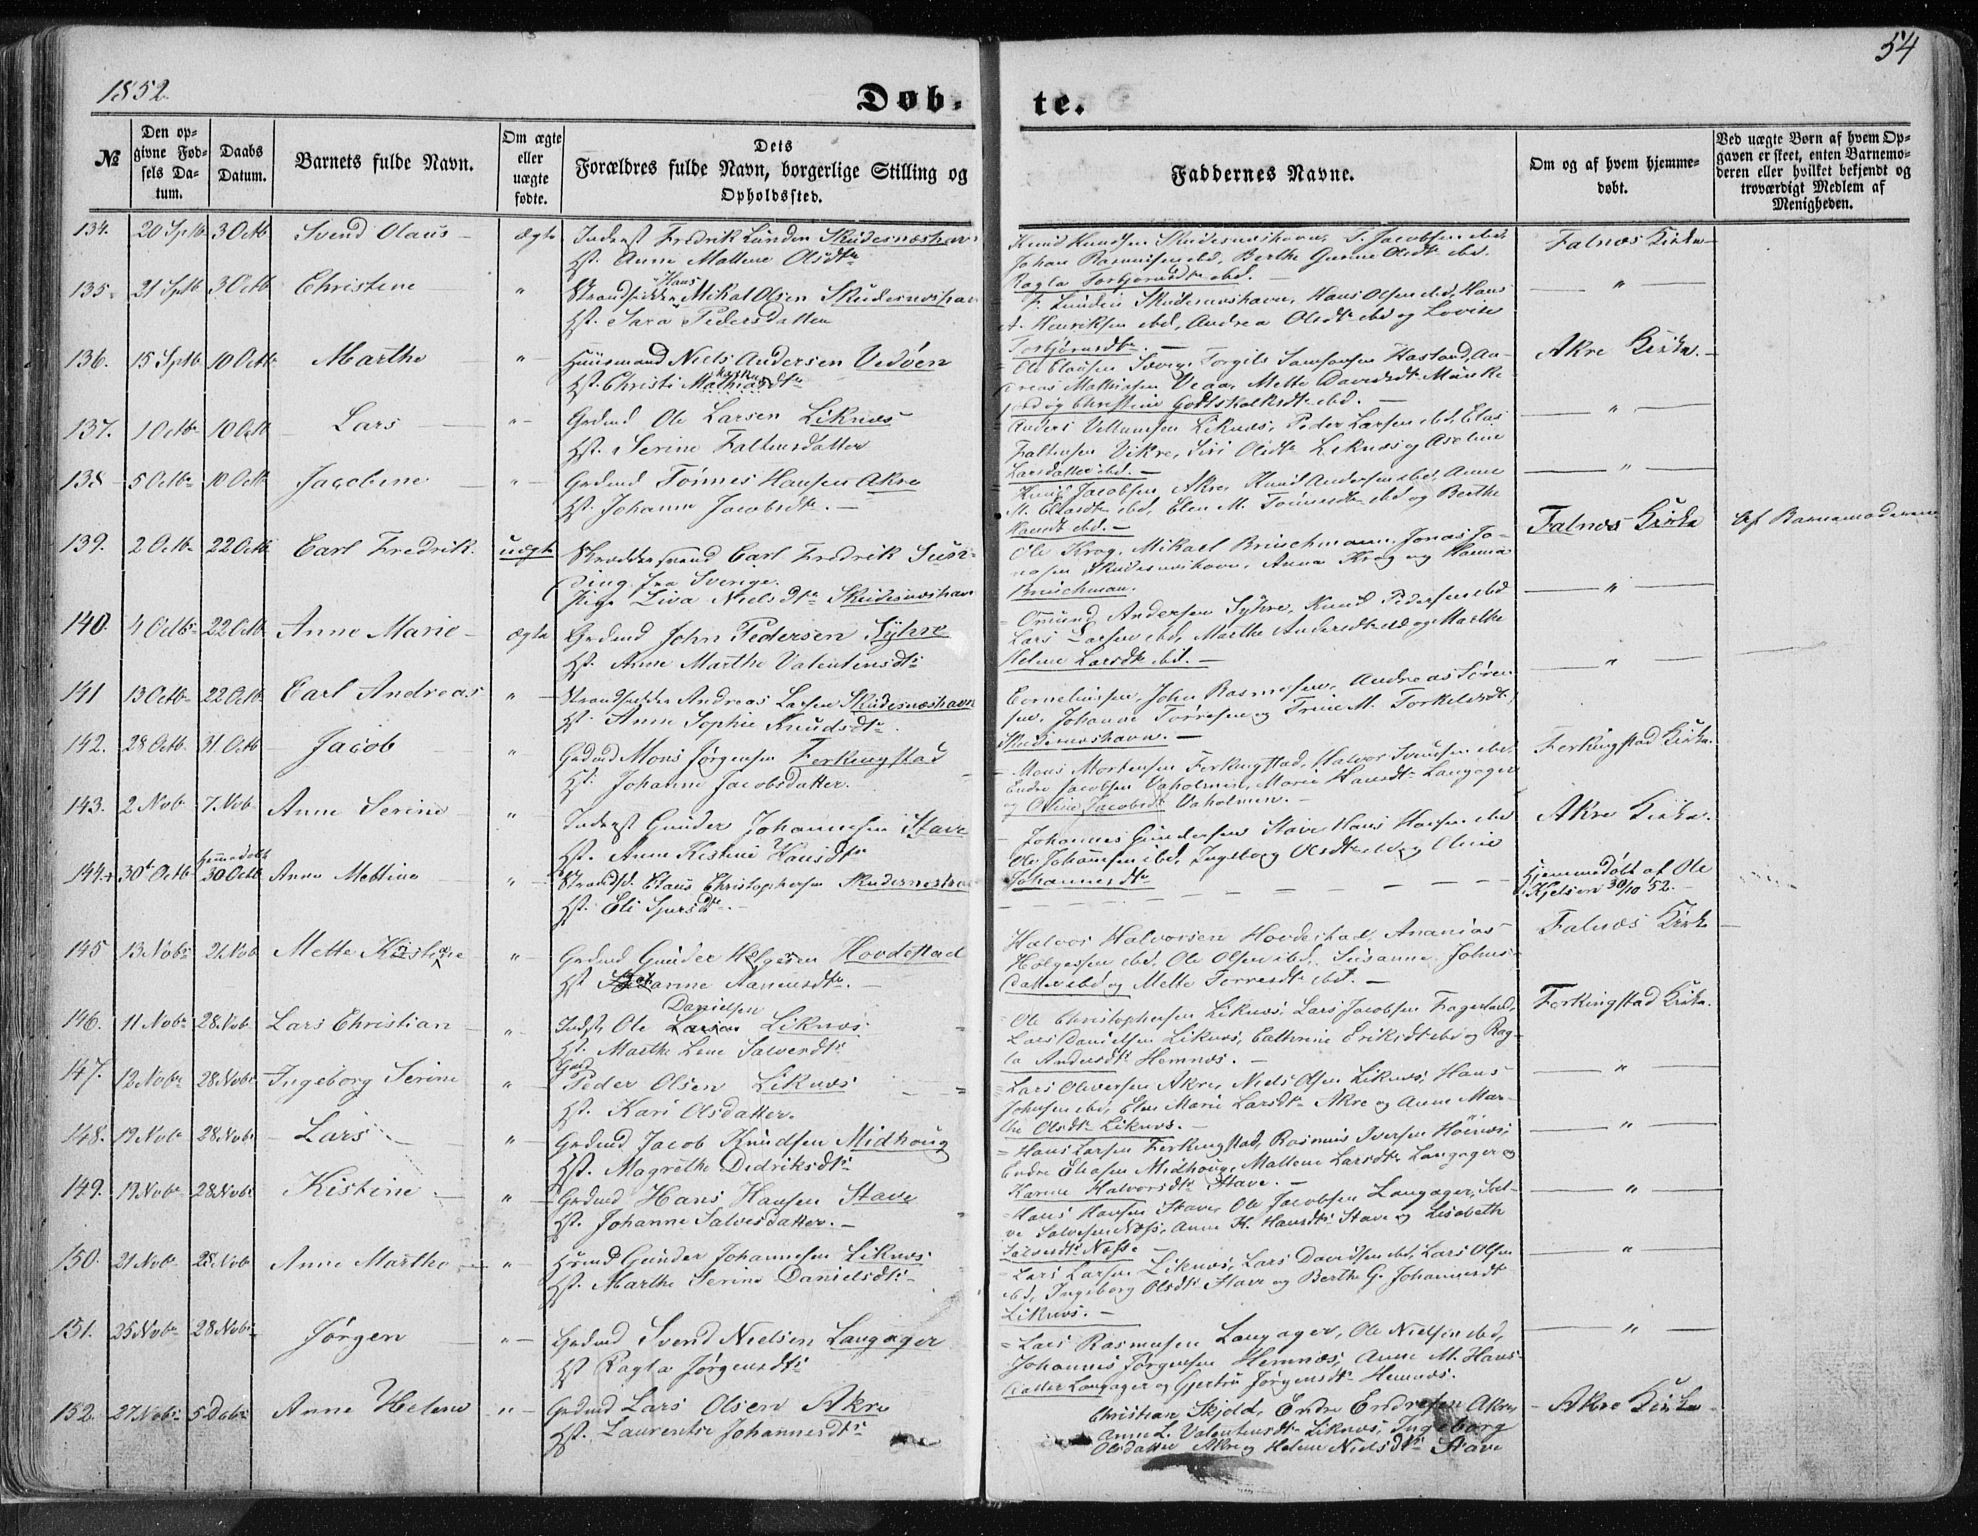 1852
54
Døb-
te.
№
Den opgivne Fødsels Datum.
Daabs Datum.
Barnets fulde Navn.
Om ægte eller uægte fødte.
Dets
Forældres fulde Navn, borgerlige Stilling og
Opholdssted.
Faddernes Navne.
Om og af hvem hjemmedøbt.
Ved uægte Børn af hvem Opgaven er skeet, enten Barnemoderen eller hvilket bekjendt og troværdigt Medlem af Menigheden.
134. 20 Septb 3 Octb Svend Olaus ægte Inderst Fredrik Lunden Skudesnæshavn
Hst. Anne Mallene Olsdtr
Knud Knudsen Skudesnæshavn, T. Jacobsen ibd,
Johan Rasmusen ibd, Berthe Gurine Olsdtr ibd.
Ragla Torbjørnsdtr ibd.
Falnæs Kirke
135. 21 Septb 3 Octb Christine " Strandsidder Hans Mikal Olsen Skudesnæshavn
Hst. Sara Pedersdatter
F. Lunden Skudesnæshavn, Hans Olsen ibd, Hans
A. Henriksen ibd, Andrea Olsdtr ibd og Lovise
Torbjørnsdtr. "
136. 15 Septb 10 Octb Marthe " Huusmand Niels Andersen Vedøen
Hst. Christi Mathiasdtr
Ole Clausen Sævig, Torgils Samsonsen Hasland, An-
dreas Mathiasen Veaa, Mette Davidsdtr Munke-
jord og Christine Godtskalksdtr ibd.
Akre Kirke.
137. 1 Octb 10 Octb Lars " Grdmd Ole Larsen Liknæs
Hst. Serine Faltinsdatter
Anders Villumsen Liknæs, Peder Larsen ibd, Elias
Faltinsen Vikre, Siri Olsdtr Liknæs og Aseline
Larsdatter ibd. "
138 5 Octb 10 Octb Jacobine " Grdmd Tønnes Hansen Akre
Hst. Johanne Jacobsdtr.
Knud Jacobsen Akre, Knud Andersen ibd, Anne
M. Eliasdtr ibd, Elen M. Tønnesdtr ibd og Berthe
Knudsdtr ibd. "
139. 2 Octb 22 Octb Carl Fredrik. uægte Skræddersvend Carl Fredrik
fra Sverige.
Pige Liva Nielsdtr Skudesnæshavn
Ole Krog, Mikael Bruschmann, Jonas Jo-
nasen Skudesnæshavn, Anna Krog og Hanna
Bruschman.
Falnæs Kirke
Af Barnemoderen
140. 4 Octb 22 Octb Anne Marie ægte Grdmd John Pedersen Syhre
Hst. Anne Marthe Valentinsdtr
Omund Andersen Syhre, Knud Pedersen ibd
Lars Larsen ibd, Marthe Andersdtr ibd og Marthe
Helene Larsdtr ibd. "
141 13 Octb 22 Octb Carl Andreas " Strandsidder Andreas Larsen Skudesnæshavn
Hst. Anne Sophie Knudsdtr.
Corneliusen, John Rasmusen, Andreas Søren-
sen, Johanne Torresen og Trine M. Torkelsdtr
Skudesnæshavn. "
142. 28 Octb 31 Octb Jacob " Grdmd Mons Jørgensen Ferkingstad
Hst. Johanne Jacobsdatter.
Mons Mortensen Ferkingstad, Halvor Svendsen ibd,
Endre Jacobsen Vaholmen, Marie Hansdtr Langager
og Oline Jacobsdtr Vaholmen.
Ferkingstad Kirke.
143. 2 Nob 7 Nob Anne Serine " Inderst Gunder Johannesen Stave
Hst. Anne Kistine Hansdtr
Johannes Gundersen Stave, Hans Hansen ibd
Ole Johannesen ibd, Ingeborg Olsdtr ibd og Oline
Johannesdtr
Akre Kirke.
144. 30t Octb hjemmedøbt 30 Octb Anne Mettine " Strandsd. Claus Christophersen Skudesnæshavn
Hst. Eli Sjursdtr.
Hjemmedøbt af Ole
Kjelsen 30/10 52.
145 13 Nobr 21 Nob Mette Kistine " Grdmd Gunder Helgesen Hovdestad
Hst
Halvor Halvorsen Hovdestad, Ananias
Holgersen ibd, Ole Olsen ibd, Susanne Johns-
datter ibd og Mette Torresdtr ibd.
Falnæs Kirke
146. 11 Nobr 28 Nob Lars Christian " Indst. Ole Larsen Danielsen Liknæs
Hst. Marthe Lene Salvesdtr
Ole Christophersen Liknæs, Lars Jacobsen Fagerland,
Lars Danielsen Liknæs, Cathrine Eriksdtr ibd og Rag-
la Andersdtr Hemnæs.
Ferkingstad Kirke.
147. 12 Nobr 28 Nobr Ingeborg Serine " Grdmd Peder Olsen Liknæs
Hst. Kari Olsdatter.
Lars Oliversen Akre, Niels Olsen Liknæs, Hans
Johnsen ibd, Elen Marie Larsdtr Akre og Anne Mar-
the Olsdtr Liknæs. "
148. 19 Nobr 28 Nobr Lars " Grdmd Jacob Knudsen Midhoug
Hst. Magrethe Didriksdtr
Hans Larsen Ferkingstad, Rasmus Iversen Høinæs,
Endre Eliasen Midhoug, Mallene Larsdtr Langager og
Karine Halvorsdtr Stave. "
149. 19 Nobr 28 Nobr Kistine " Grdmd Hans Hansen Stave
Hst. Johanne Salvesdatter.
Hans Hansen Stave, Ole Jacobsen Langager, Sal-
ve Salvesen Næss, Anne H. Hansdtr Stave og Lisabeth
Salvesdtr Næsse "
150. 21 Nob 28 Nob Anne Marthe " Huusmd Gunder Johannesen Liknæs
Hst. Marthe Serine Danielsdtr
Lars Larsen Liknæs, Lars Davidsen ibd, Lars Olsen
ibd, Ingeborg Olsdtr Stave og Berthe G. Johannesdtr
Liknæs. "
151. 25 Nobr 28 Nobr Jørgen " Grdmd Svend Nielsen Langager
Hst Ragla Jørgensdtr
Lars Rasmusen Langager, Ole Nielsen ibd,
Johannes Jørgensen Hemnæs, Anne M. Hans-
datter Langager og Gjertru Jørgensdtr Hemnæs. "
152. 27 Nobr 5 Debr Anne Helene " Grdmd Lars Olsen Akre
Hst. Laurentse Johannesdtr
Christian Skjold, Endre Endresen Akre,
Anne L. Valentinsdtr Liknæs, Ingeborg
Olsdatter Akre og Helene Nielsdtr Stave
Akre Kirke